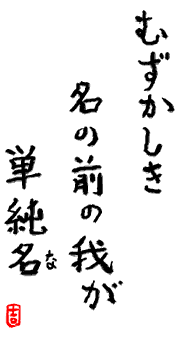 むずかしき
名の前の我が
単純名
な